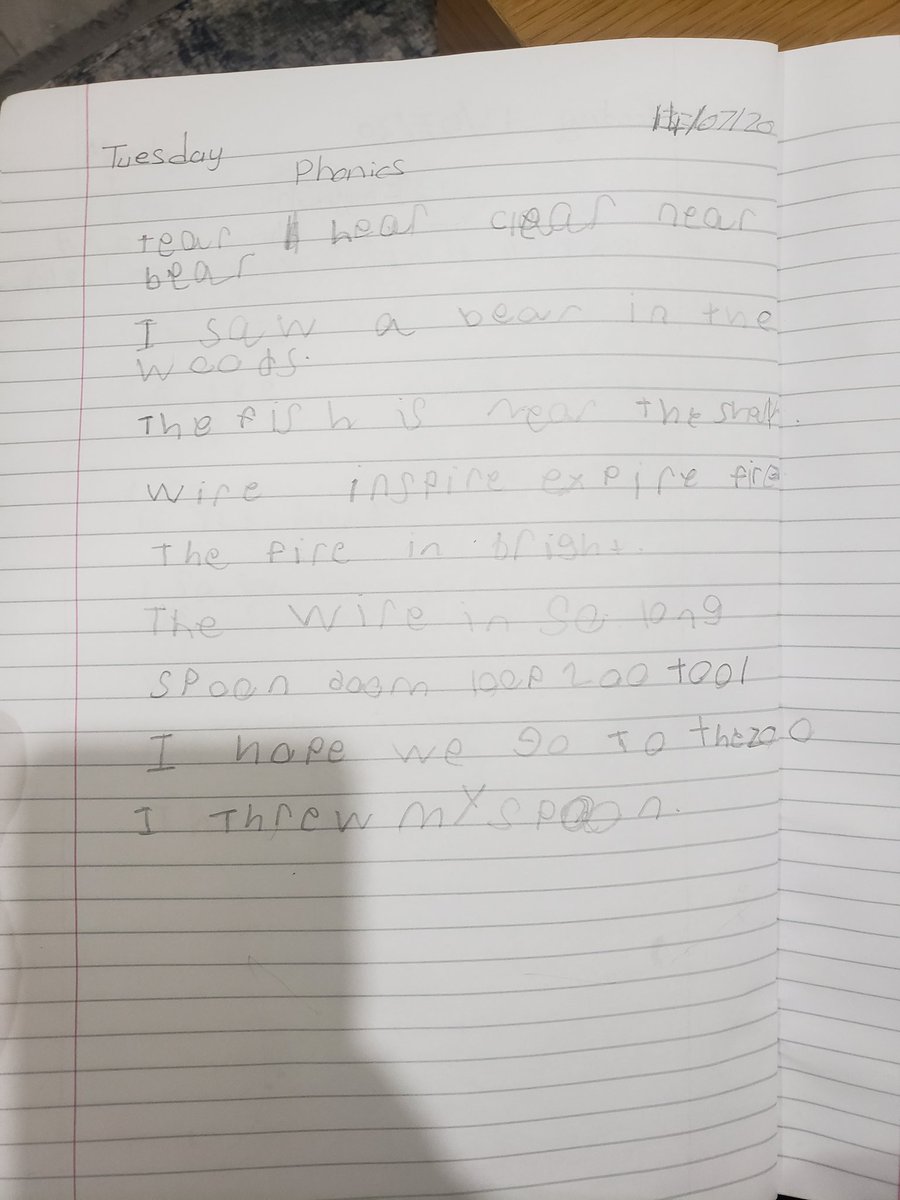 14/07/20
Tuesday
Phonics
tear hear clear near
bear
I saw a bear in the
woods.
The fish is near the shark.
wire inspire expire fire
The fire in bright.
The wire in so long
spoon doom loop zoo tool
I hope we go To the zoo
I Threw my spoon.